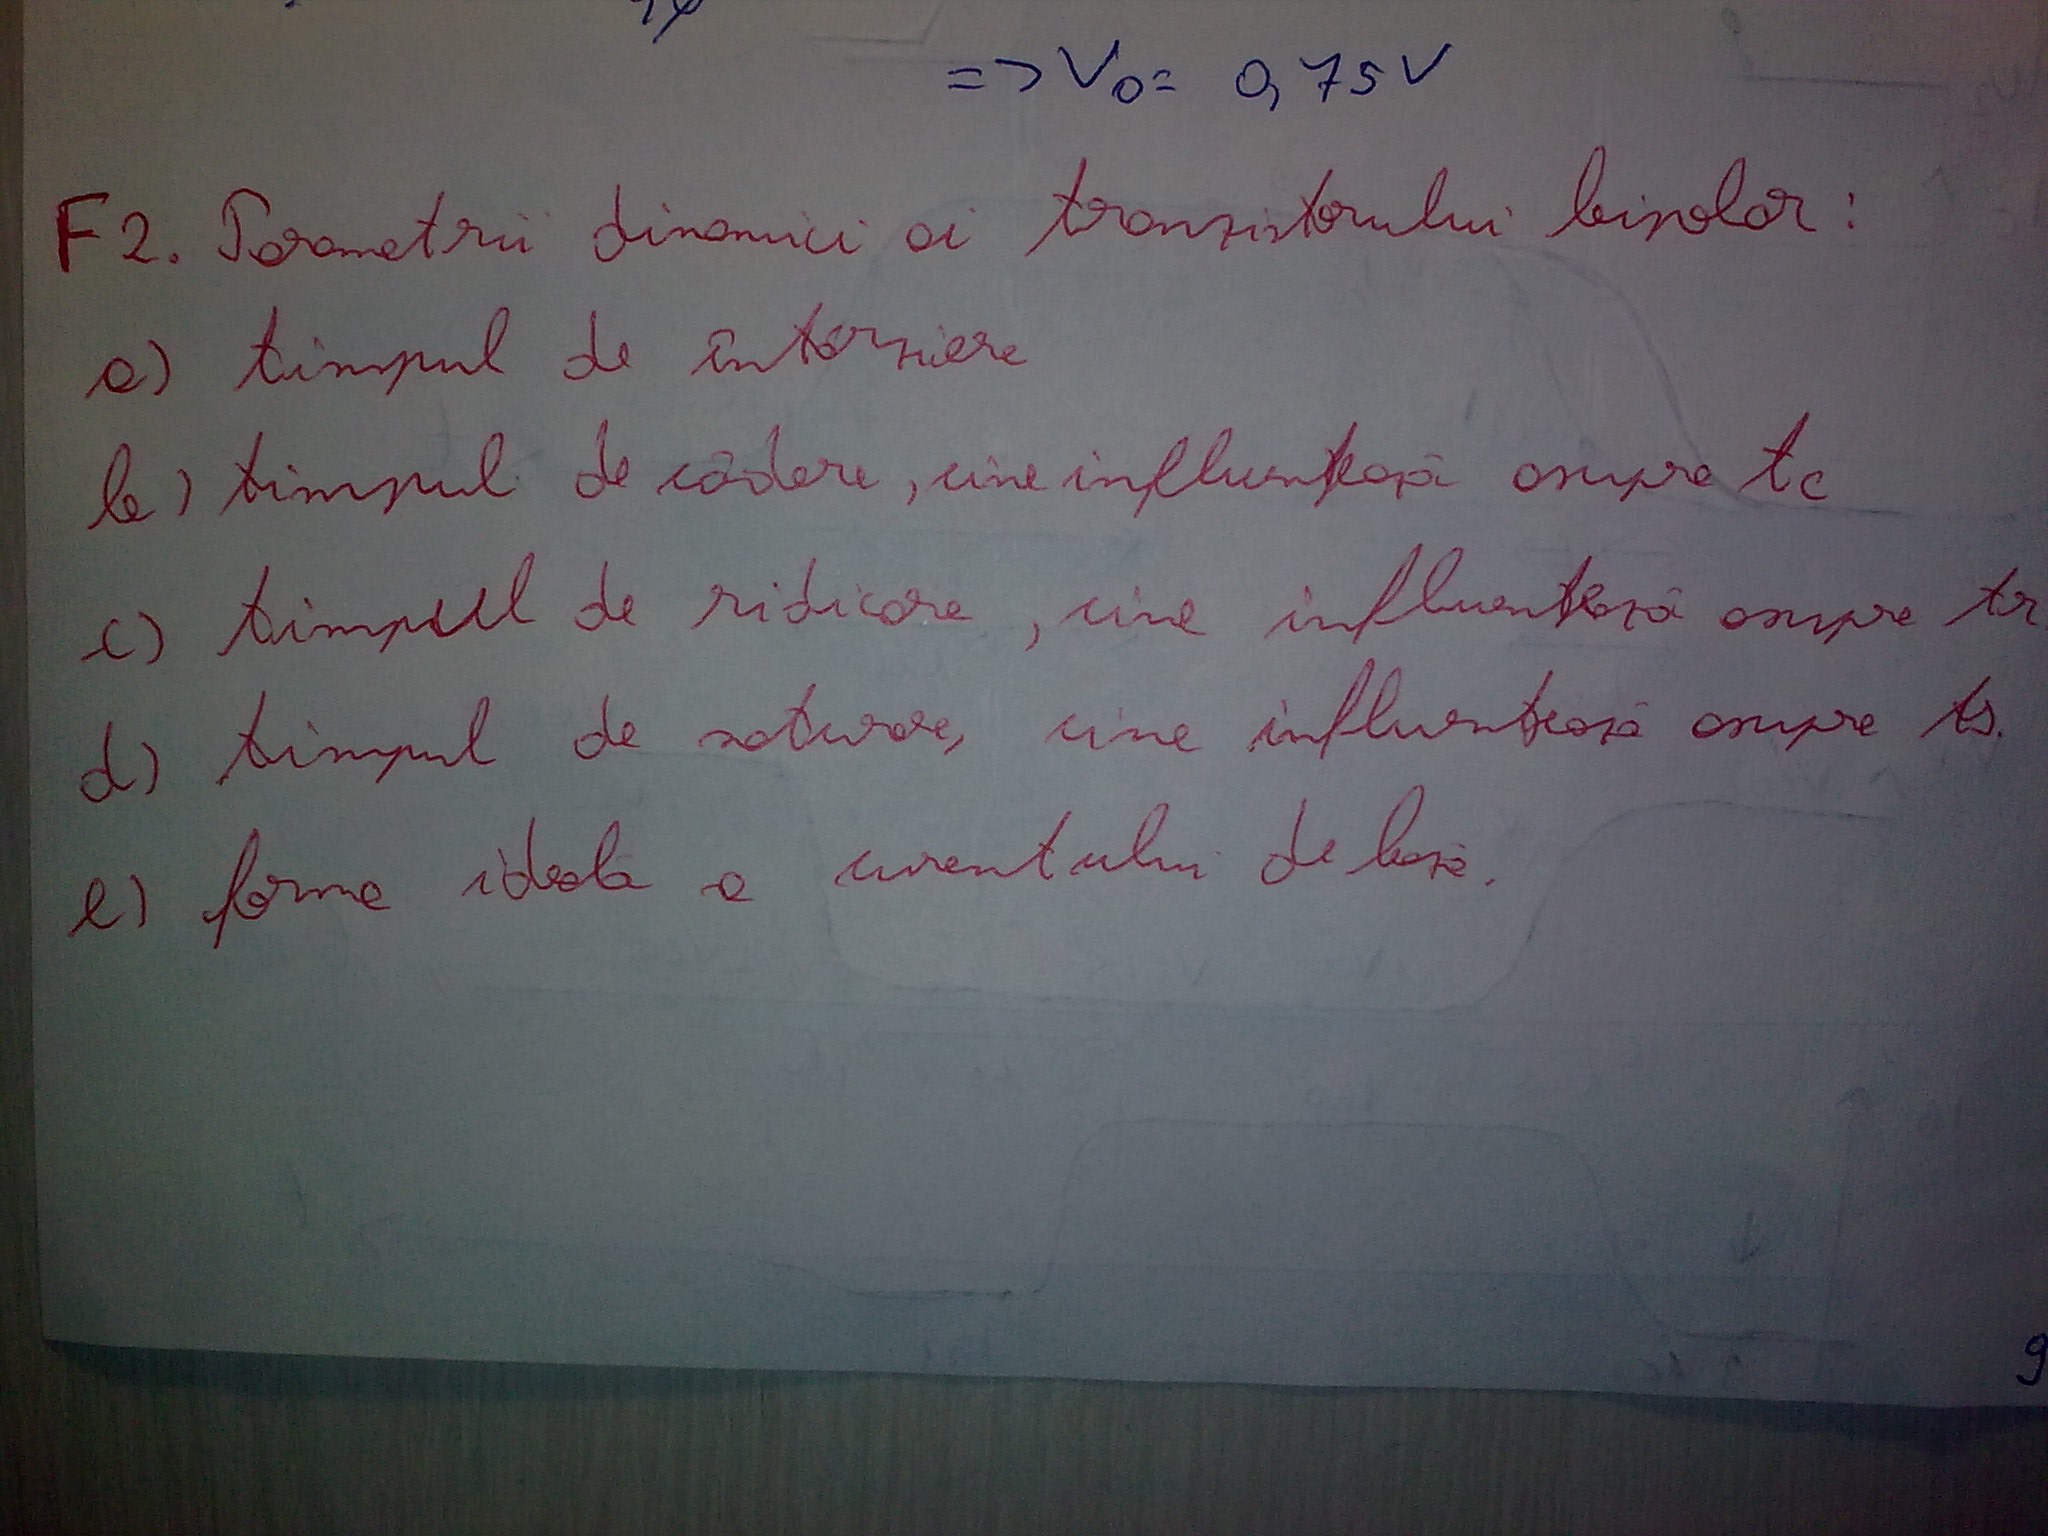 => V0 = 0,75V
F2. Parametrii dinamici ai tranzistorului bipolar:
a) timpul de întârziere
b) timpul de cădere, cine influențează asupra tc
c) timpul de ridicare, cine influențează asupra tr
d) timpul de saturare, cine influențează asupra ts.
e) forma ideală a curentului de bază.
9